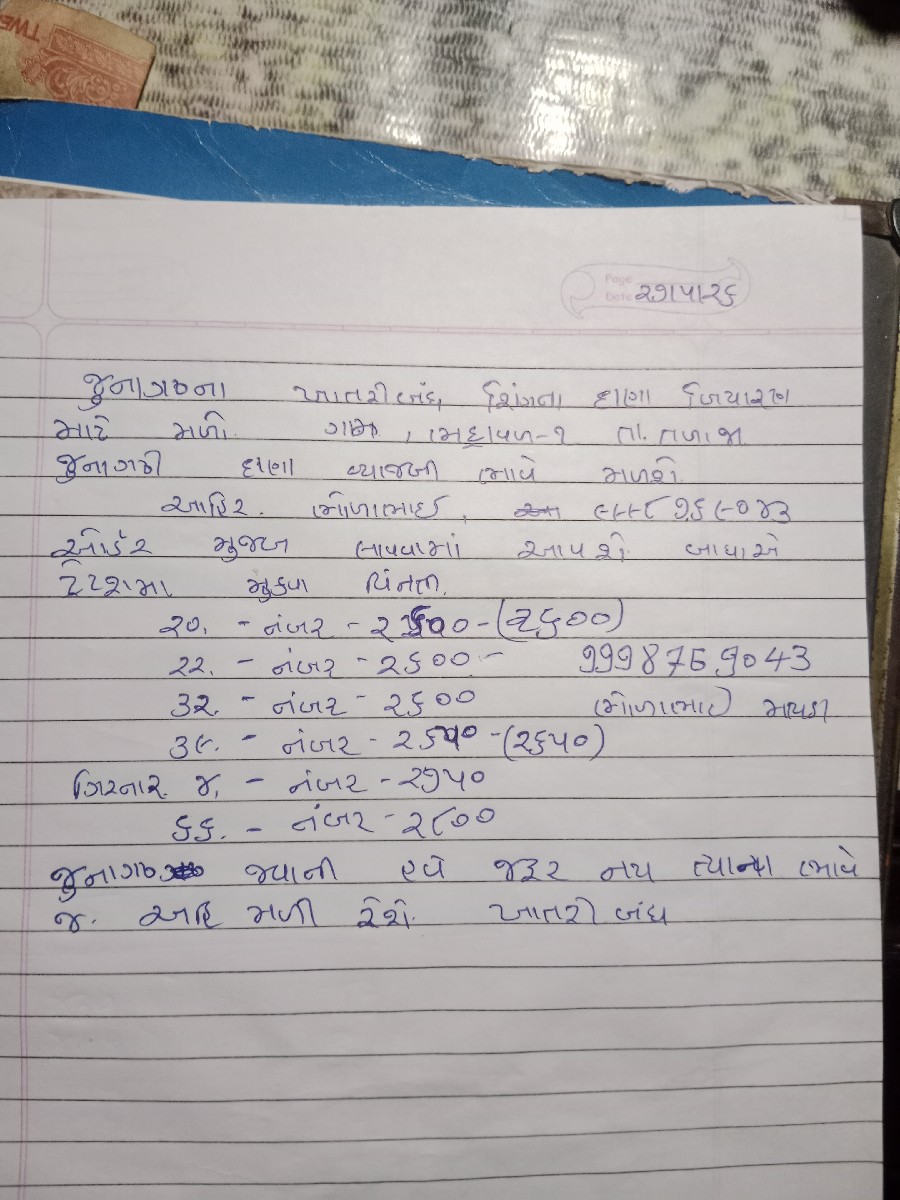 TWE
Page
Date ૨૭/૫/૨૬
જુનાગઢના ખાતરીબંધ, શિંગના દાણા બિયારણ
માટે મળો. ગામ, ભદ્રાવળ-૧ તા. તળાજા
જુનાગઢી દાણા વ્યાજબી ભાવે મળશે
આહિર. ભોળાભાઈ, ૯૯૯૮૭૬૯૦૪૩
ઓર્ડર મુજબ લાવવામાં આવશે બાધાએ
ટેટશમા મુકવા વિનતી.
૨૦. - નંબર - ૨૬૦૦ - (૨૬૦૦)
૨૨. - નંબર - ૨૬૦૦ - 9998769043
૩૨. - નંબર - ૨૬૦૦ ભોળાભાઈ
૩૯. - નંબર - ૨૬૫૦ - (૨૬૫૦)
ગિરનાર ૪. - નંબર - ૨૭૫૦
૬૬. - નંબર - ૨૮૦૦
જુનાગઢ જવાની હવે જરૂર નય ત્યાના ભાવે
જ. અહિ મળી રેશે. ખાતરી બંધ